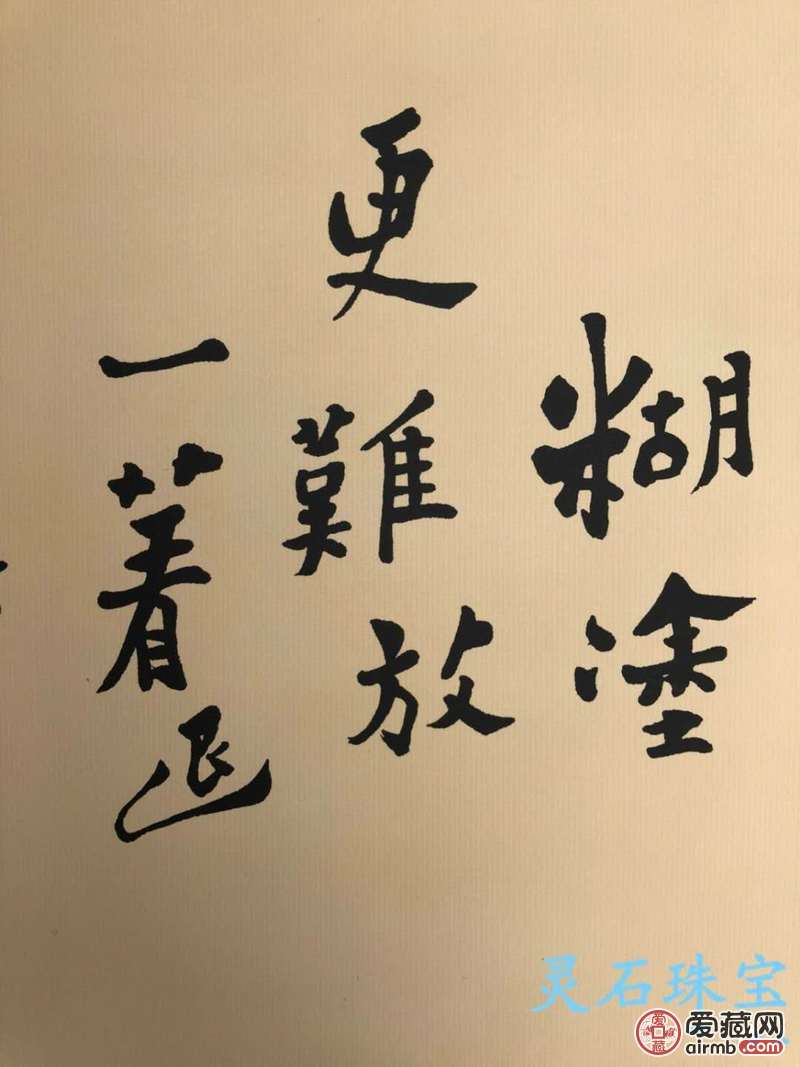 糊塗
更難放
一著退
灵石珠宝
爱藏网
airmb.com